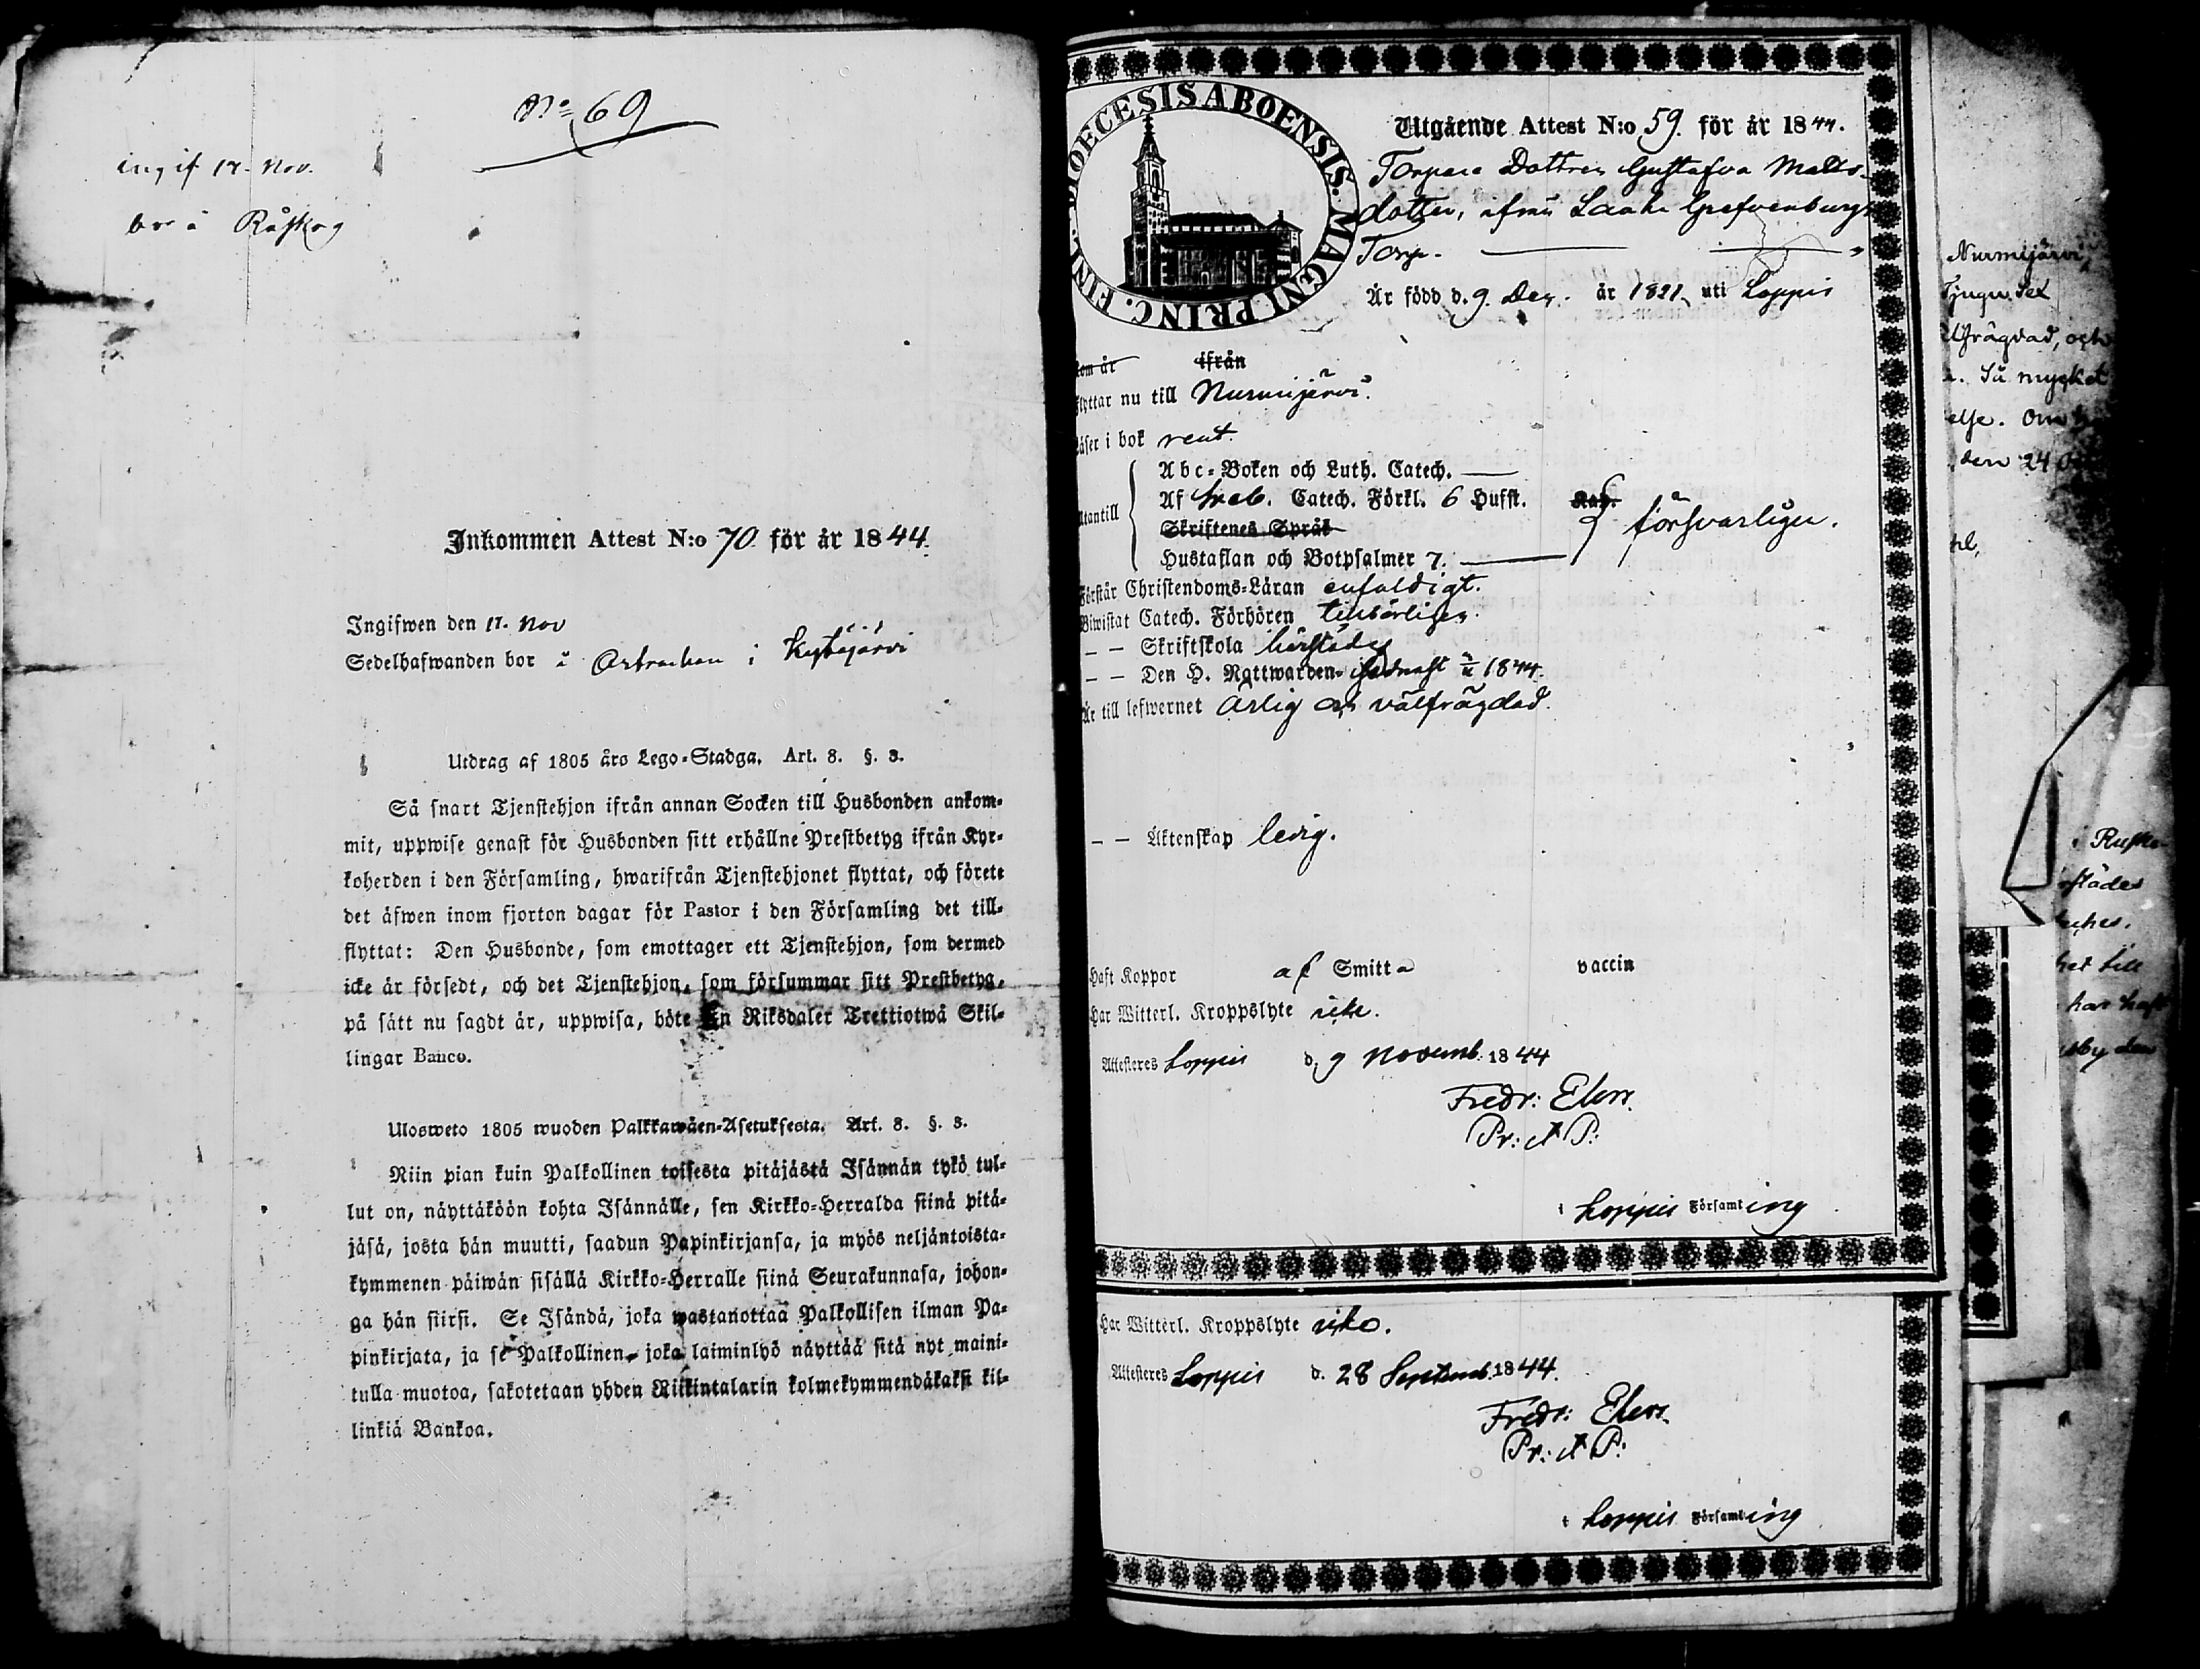 No 69
ingif 17. Nov.
bor å Råskog
Inkommen Attest N:o 70 för år 1844.
Ingifwen den 17. Nov
Sedelhafwanden bor å i Kytäjärvi
Utdrag af 1805 års Lego-Stadga. Art. 8. §. 3.
Så snart Tjenstehjon ifrån annan Socken till Husbonden ankom-
mit, uppwise genast för Husbonden sitt erhållne Prestbetyg ifrån Kyr-
koherden i den Församling, hwarifrån Tjenstehjonet flyttat, och förete
det äfwen inom fjorton dagar för Pastor i den Församling det till-
flyttat: Den Husbonde, som emottager ett Tjenstehjon, som dermed
icke är försedt, och det Tjenstehjon, som försummar sitt Prestbetyg,
på sätt nu sagdt är, uppwisa, böte En Riksdaler Trettiotwå Skil-
lingar Banco.
Ulosweto 1805 wuoden Palkkawäen-Asetuksesta. Art. 8. §. 3.
Niin pian kuin Palkollinen toisesta pitäjästä Isännän tykö tul-
lut on, näyttäköön kohta Isännälle, sen Kirkko-Herralda siinä pitä-
jäsä, josta hän muutti, saadun Papinkirjansa, ja myös neljäntoista-
kymmenen päiwän sisällä Kirkko-Herralle siinä Seurakunnasa, johon-
ga hän siirsi. Se Isändä, joka wastanottaa Palkollisen ilman Pa-
pinkirjata, ja se Palkollinen, joka laiminlyö näyttää sitä nyt maini-
tulla muotoa, sakotetaan yhden Riikintalarin kolmekymmendäkaksi kil-
linkiä Bankoa.
DIOECESIS ABOENSIS. MAGNI PRINC. FINL.
Utgående Attest N:o 59. för år 1844.
Torpare Dottren Gustafva Matts-
dotter, ifrån Laaka Grefvenburgs
Torp.
Är född d. 9 Dec. år 1821, uti Loppis
kom år ifrån
flyttar nu till Nurmijärvi.
Läser i bok rent.
Abc-Boken och Luth. Catech.
Utantill Af Sveb. Catech. Förkl. 6 Hufst. Kap. försvarligen.
Skriftenes Språk
Hustaflan och Botpsalmer 7.
Förstår Christendoms-Läran enfaldigt.
Biwistat Catech. Förhören tillbörligen.
– – Skriftskola härstädes
– – Den H. Nattwarden 1844.
Är till lefwernet Ärlig och välfrägdad.
– – Äktenskap ledig.
Haft Koppor af Smitta vaccin
Har Witterl. Kroppslyte icke.
Attesteres Loppis d. 9 Novemb. 1844
Fredr: Elers.
Pr: et P:
i Loppis Församling
Har Witterl. Kroppslyte icke.
Attesteres Loppis d. 28 Septemb. 1844.
Fredr: Elers.
Pr: et P:
i Loppis Församling
Nurmijärvi,
Tjugu Sex
älfrägdad, och
Så mygket
else. Om
den 24
i Rusko
rstädes
till
har haft
by den